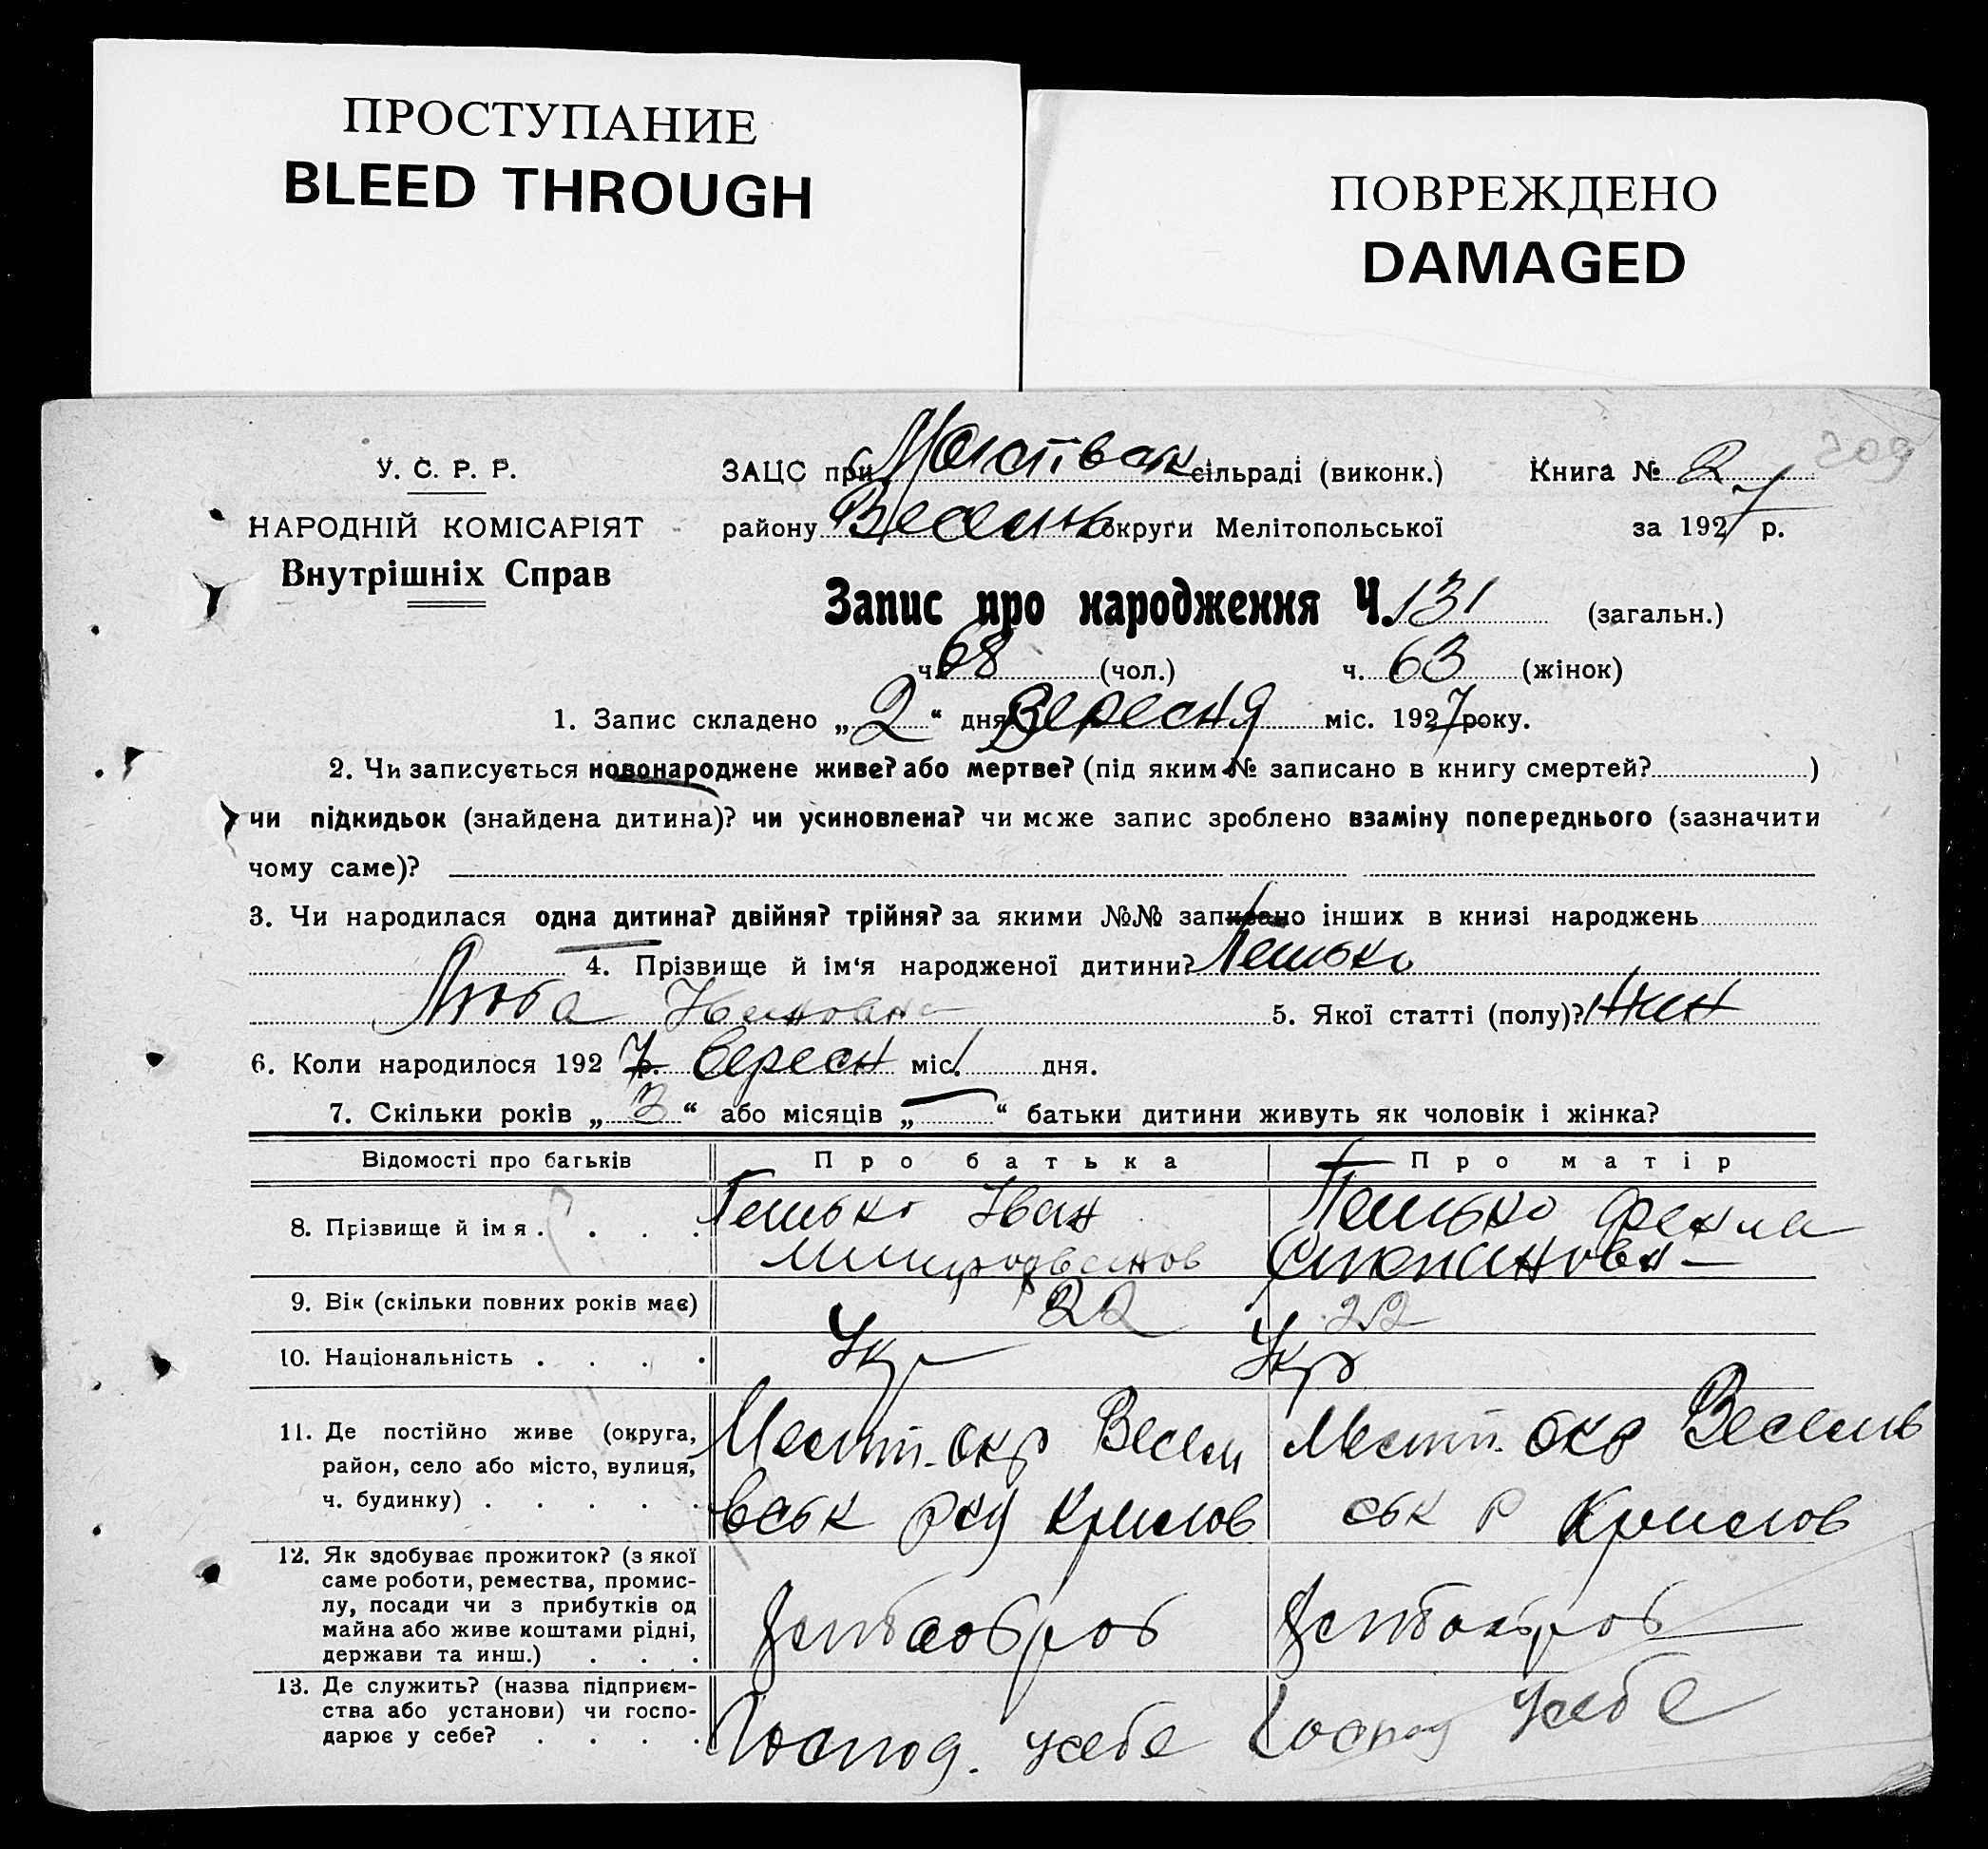 ПРОСТУПАНИЕ
BLEED THROUGH
ПОВРЕЖДЕНО
DAMAGED
У. С. Р. Р.
НАРОДНІЙ КОМІСАРІЯТ
Внутрішніх Справ
ЗАЦС при сільраді (виконк.) Книга № 2 209
району округи Мелітопольської за 1927 р.
Запис про народження Ч. 131 (загальн.)
ч. 68 (чол.) ч. 63 (жінок)
1. Запис складено „2“ дня Вересня міс. 1927 року.
2. Чи записується новонароджене живе? або мертве? (під яким № записано в книгу смертей? )
чи підкидьок (знайдена дитина)? чи усиновлена? чи може запис зроблено взаміну попереднього (зазначити
чому саме)?
3. Чи народилася одна дитина? двійня? трійня? за якими №№ записано інших в книзі народжень
4. Прізвище й ім‘я народженої дитини? Пешько
Люба Ивановна 5. Якої статті (полу)? жен
6. Коли народилося 1927 р. Вересн міс. 1 дня.
7. Скільки років „3“ або місяців „—“ батьки дитини живуть як чоловік і жінка?
Відомості про батьків Про батька Про матір
8. Прізвище й імя . . . . Пешько Іван Пешько Фекла
Степановн
9. Вік (скільки повних років має) 22 22
10. Національність . . . . Укр Укр
11. Де постійно живе (округа, район, село або місто, вулиця, ч. будинку) . . . . .
Меліт. окр Весел Меліт. окр Весель
вськ Крилов ськ р Крилов
12. Як здобуває прожиток? (з якої
саме роботи, ремества, промис-
лу, посади чи з прибутків од
майна або живе коштами рідні,
держави та инш.) . . .
13. Де служить? (назва підприєм-
ства або установи) чи госпо-
дарює у себе? . . . .
Господ. у себе Господ у себе